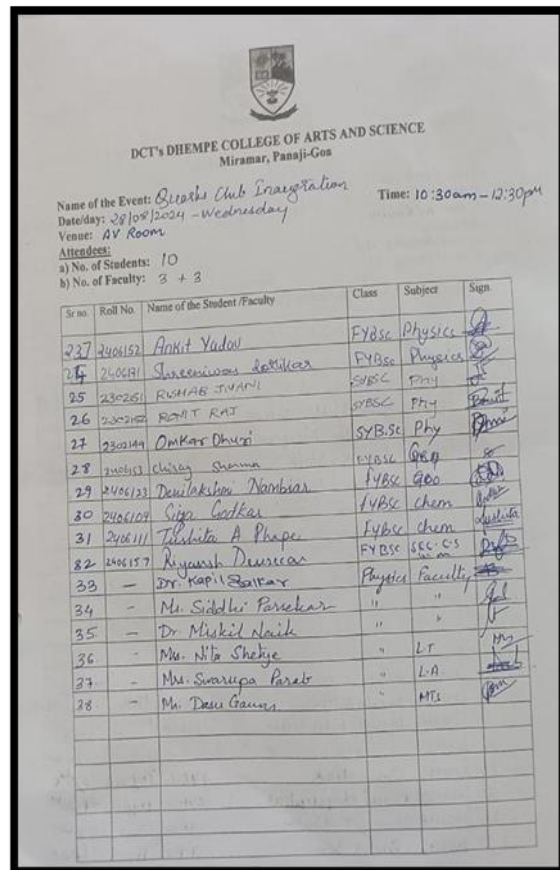 DCT's DHEMPE COLLEGE OF ARTS AND SCIENCE
Miramar, Panaji-Goa
Name of the Event: Quarks Club Inaugration Time: 10:30am - 12:30pm
Date/day: 28/08/2024 - Wednesday
Venue: AV Room
Attendees:
a) No. of Students: 10
b) No. of Faculty: 3 + 3
Sr no. Roll No. Name of the Student /Faculty Class Subject Sign
23 2406152 Ankit Yadav FYBSc Physics
24 Shreeniwas FYBSc Physics
25 RUSHAB JIVANI SYBSC Phy
26 RONIT RAJ SYBSC Phy
27 2302149 Omkar Dhuri SYB.Sc Phy
28 2406153 Chirag Sharma FYBSC
29 2406123 Devilakshmi Nambiar FYBSc
30 2406109 Godkar FYBSc chem
31 2406111 FYBSc chem
32 2406157 Riyansh FYBSC
33 - Dr. Kapil Physics Faculty
34 - Ms. Siddhi Parsekar " "
35 - Dr Miskil Naik " "
36 - Mrs. Nita Shetye " L.T
37 - Mrs. Swarupa Parab " L.A
38 - Mr. Dasu " MTS